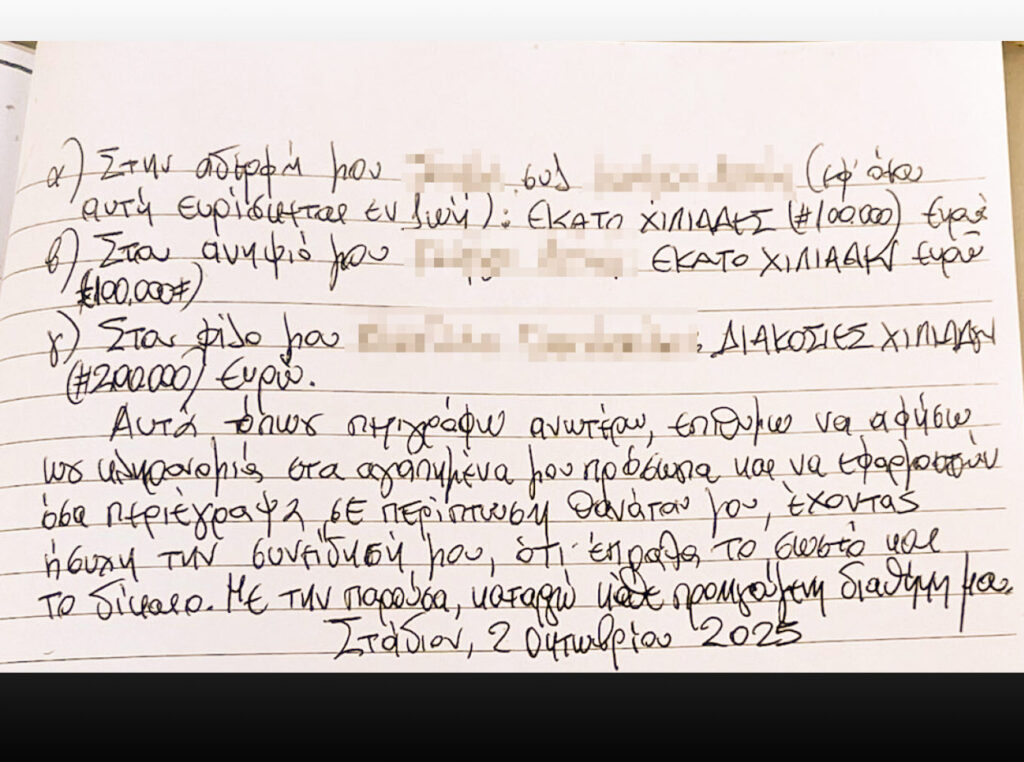 α) Στην αδερφή μου συζ (εφ' όσον
αυτή ευρίσκεται εν ζωή): ΕΚΑΤΟ ΧΙΛΙΑΔΕΣ (#100.000) Ευρώ
β) Στον ανηψιό μου ΕΚΑΤΟ ΧΙΛΙΑΔΕΣ Ευρώ
(#100.000#)
γ) Στον φίλο μου : ΔΙΑΚΟΣΙΕΣ ΧΙΛΙΑΔΕΣ
(#200.000) Ευρώ.
Αυτά όπως περιγράφω ανωτέρω, επιθυμώ να αφήσω
ως κληρονομιά στα αγαπημένα μου πρόσωπα και να εφαρμοστούν
όσα περιέγραψα, σε περίπτωση θανάτου μου, έχοντας
ήσυχη την συνείδησή μου, ότι έπραξα το σωστό και
το δίκαιο. Με την παρούσα, καταργώ κάθε προηγούμενη διαθήκη μου.
Στάδιον, 2 Οκτωβρίου 2025